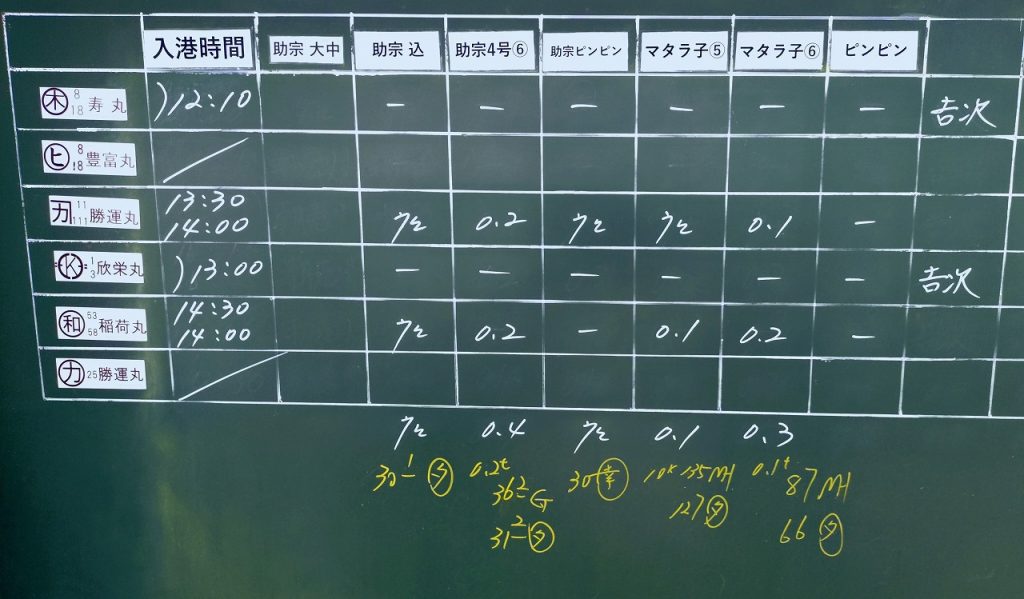 入港時間 助宗 大中 助宗 込 助宗4号⑥ 助宗ピンピン マタラ子⑤ マタラ子⑥ ピンピン
㊍ 8 18 寿丸 )12:10 ー ー ー ー ー ー 吉次
ヒ 8 18 豊富丸
カ 11 111 勝運丸 13:30 14:00 0.2 0.1 ー
K 1 3 欣栄丸 )13:00 ー ー ー ー ー ー 吉次
和 53 58 稲荷丸 14:30 14:00 0.2 ー 0.1 0.2 ー
カ 25 勝運丸
0.4 0.1 0.3
30 1 ー タ 0.2t 30 幸 10K 135 MH 0.1t 87 MH
36 2 ー G 127 タ 66 タ
31 2 ー タ